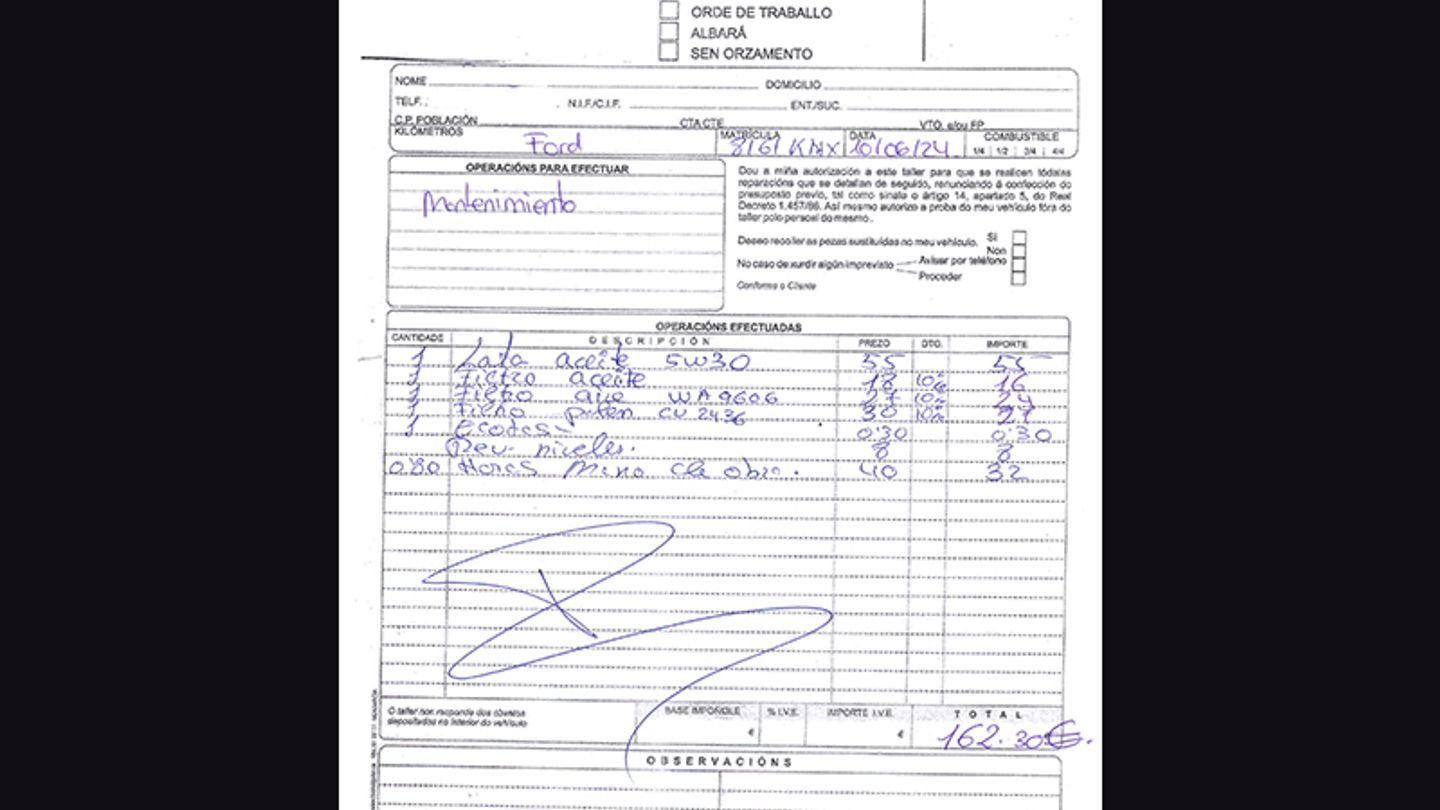 ORDE DE TRABALLO
ALBARÁ
SEN ORZAMENTO
NOME DOMICILIO
TELF.: N.I.F./C.I.F. ENT/SUC.
C.P. POBLACIÓN CTA CTE VTO. e/ou FP
KILÓMETROS Ford MATRÍCULA 8161 KNX DATA 10/06/24 COMBUSTIBLE 1/4 1/2 3/4 4/4
OPERACIÓNS PARA EFECTUAR
Mantenimiento
Dou a miña autorización a este taller para que se realicen tódalas
reparacións que se detallan de seguido, renunciando á confección do
presuposto previo, tal como sinala o artigo 14, apartado 5, do Real
Decreto 1.457/86. Así mesmo autorizo a proba do meu vehículo fóra do
taller polo persoal do mesmo.
Deseo recoller as pezas sustituídas no meu vehículo. Si
Non
No caso de xurdir algún imprevisto Avisar por teléfono
Proceder
Conforme o Cliente
OPERACIÓNS EFECTUADAS
CANTIDADE DESCRIPCIÓN PREZO DTO. IMPORTE
1 Lata aceite 5W30 55 55
1 Filtro aceite 18 10% 16
1 Filtro aire WA9606 27 10% 24
1 Filtro polen CU 2436 30 10% 27
1 Ecotas 0'30 0'30
Rev. niveles. 8 8
0'80 Horas Mano de obra. 40 32
O taller non responde dos obxetos
depositados no interior do vehículo
BASE IMPOÑIBLE % I.V.E. IMPORTE I.V.E. TOTAL
€ € 162.30€.
OBSERVACIÓNS